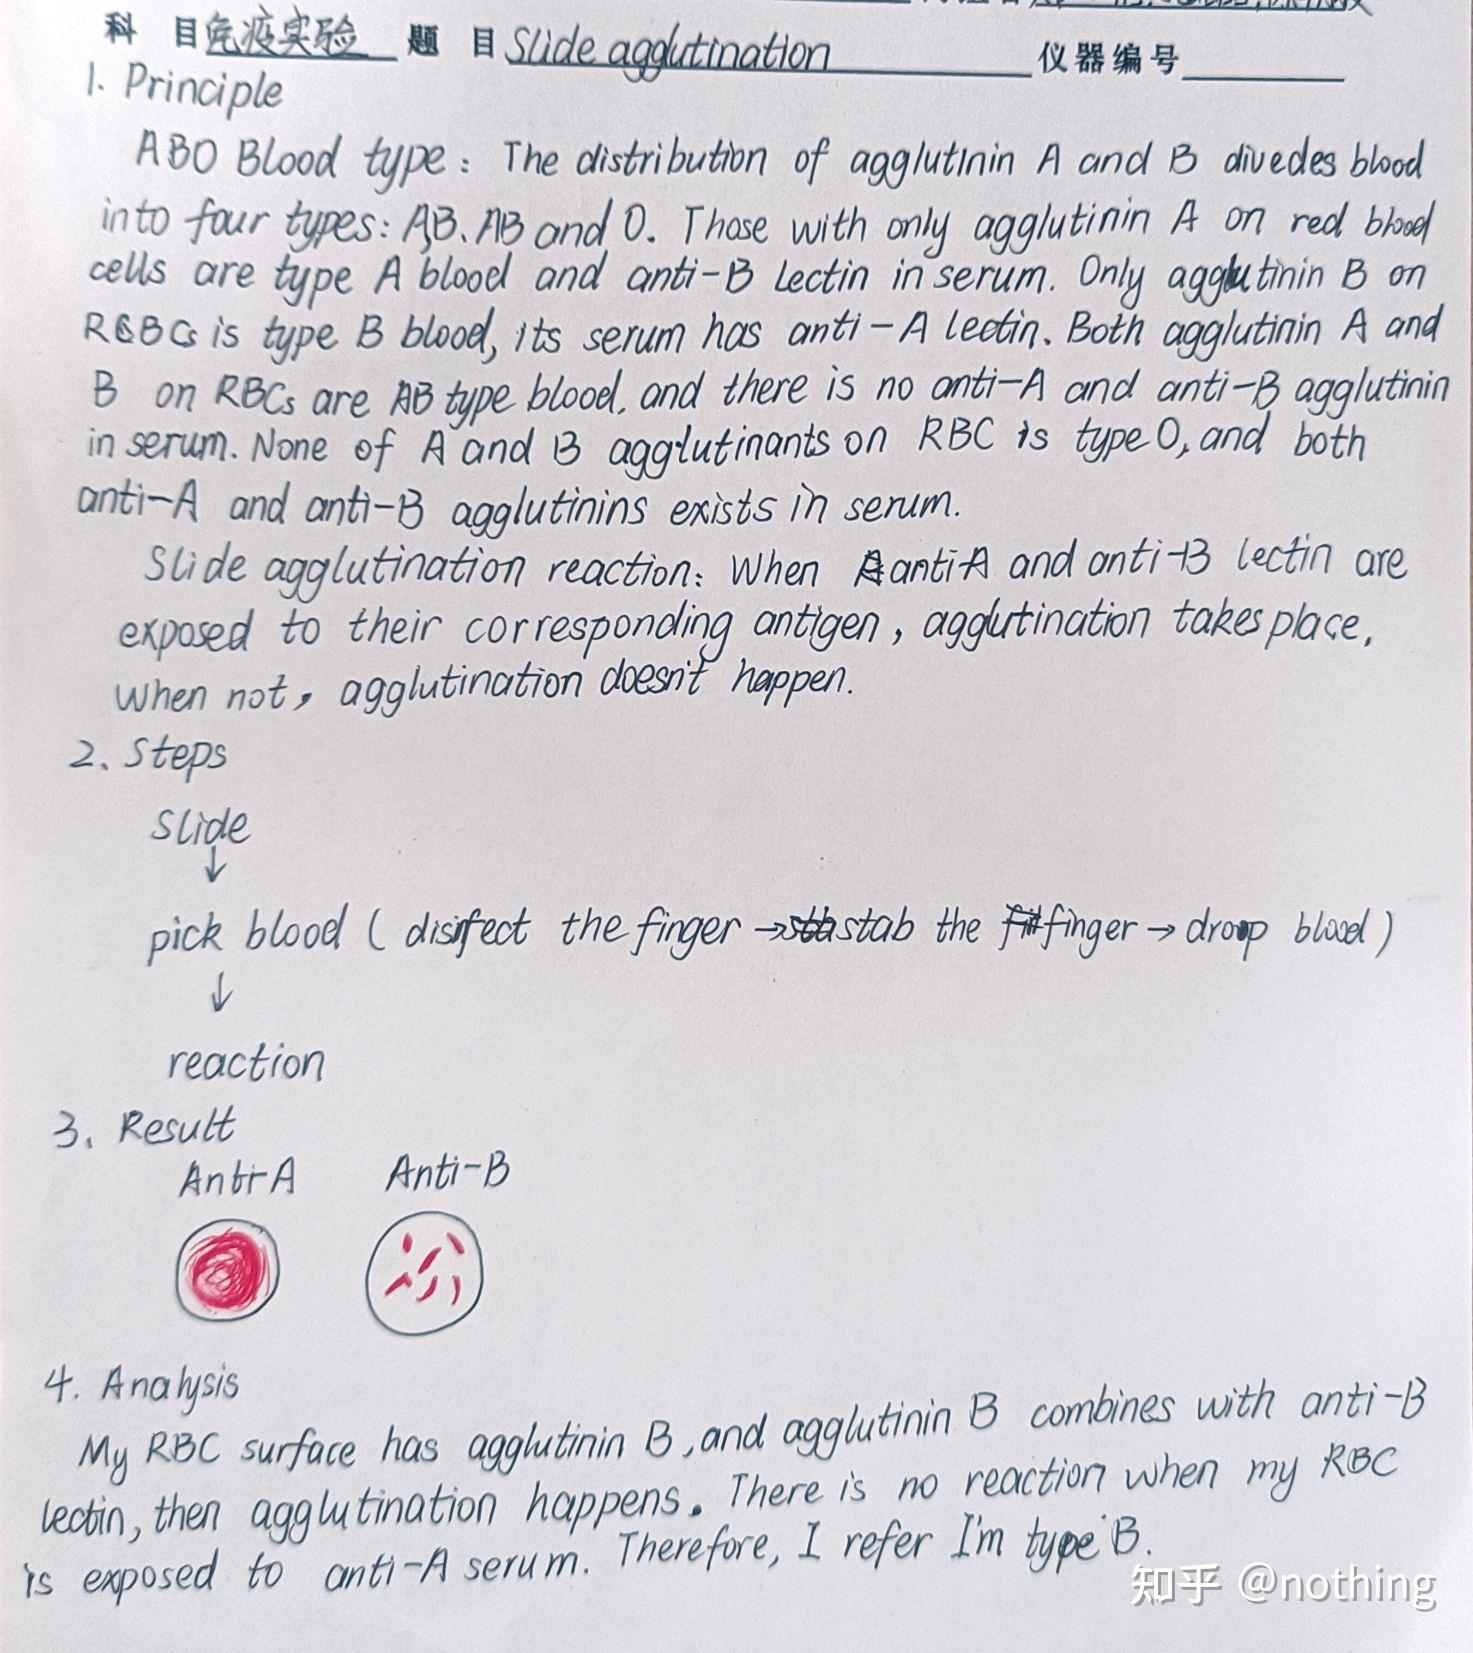 科 目 免疫实验 题 目 Slide agglutination 仪器编号
1. Principle
ABO Blood type: The distribution of agglutinin A and B divedes blood
into four types: A,B、AB and O. Those with only agglutinin A on red blood
cells are type A blood and anti-B Lectin in serum. Only agglutinin B on
RBCs is type B blood, its serum has anti-A lectin. Both agglutinin A and
B on RBCs are AB type blood, and there is no anti-A and anti-B agglutinin
in serum. None of A and B agglutinants on RBC is type O, and both
anti-A and anti-B agglutinins exists in serum.
Slide agglutination reaction: When anti-A and anti-B lectin are
exposed to their corresponding antigen, agglutination takes place,
when not, agglutination doesn't happen.
2、Steps
Slide
↓
pick blood ( disinfect the finger → stab the finger → droop blood )
↓
reaction
3、Result
Anti-A Anti-B
4. Analysis
My RBC surface has agglutinin B, and agglutinin B combines with anti-B
lectin, then agglutination happens. There is no reaction when my RBC
is exposed to anti-A serum. Therefore, I refer I'm type B.
知乎 @nothing